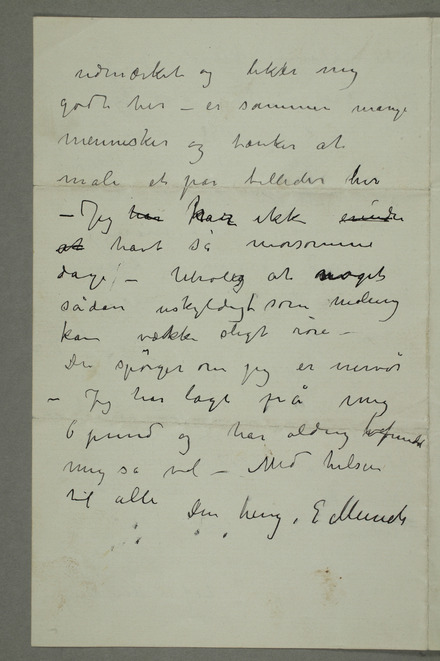 udmærket og liker mig
godt her – er sammen mange
mennesker og tænker at
male et par billeder her
– Jeg har kan ikke erindre
at havt så morsomme
dage – Utrolig at noget
sådan uskyldigt som maling
kan vække sligt røre –
Du spörger om jeg er nervös
– Jeg har lagt på mig
6 pund og har aldrig befundet
mig så vel – Med hilsen
til alle
Din heng. E Munch